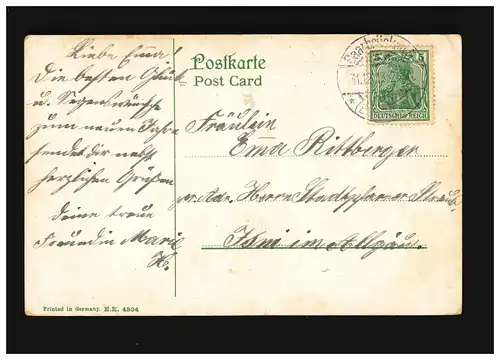 Postkarte
Post Card
Liebe Emma!
Die besten Glück-
u. Segenswünsche
zum neuen Jahre
sendet dir nebst
herzlichen Grüßen
deine treue
Freundin Marie
H.
5
DEUTSCHES REICH
31.12
Fräulein
Emma Rittberger
per Adr. Herrn Stadtpfarrer
Isni im Allgäu.
Printed in Germany. E.K. 4304